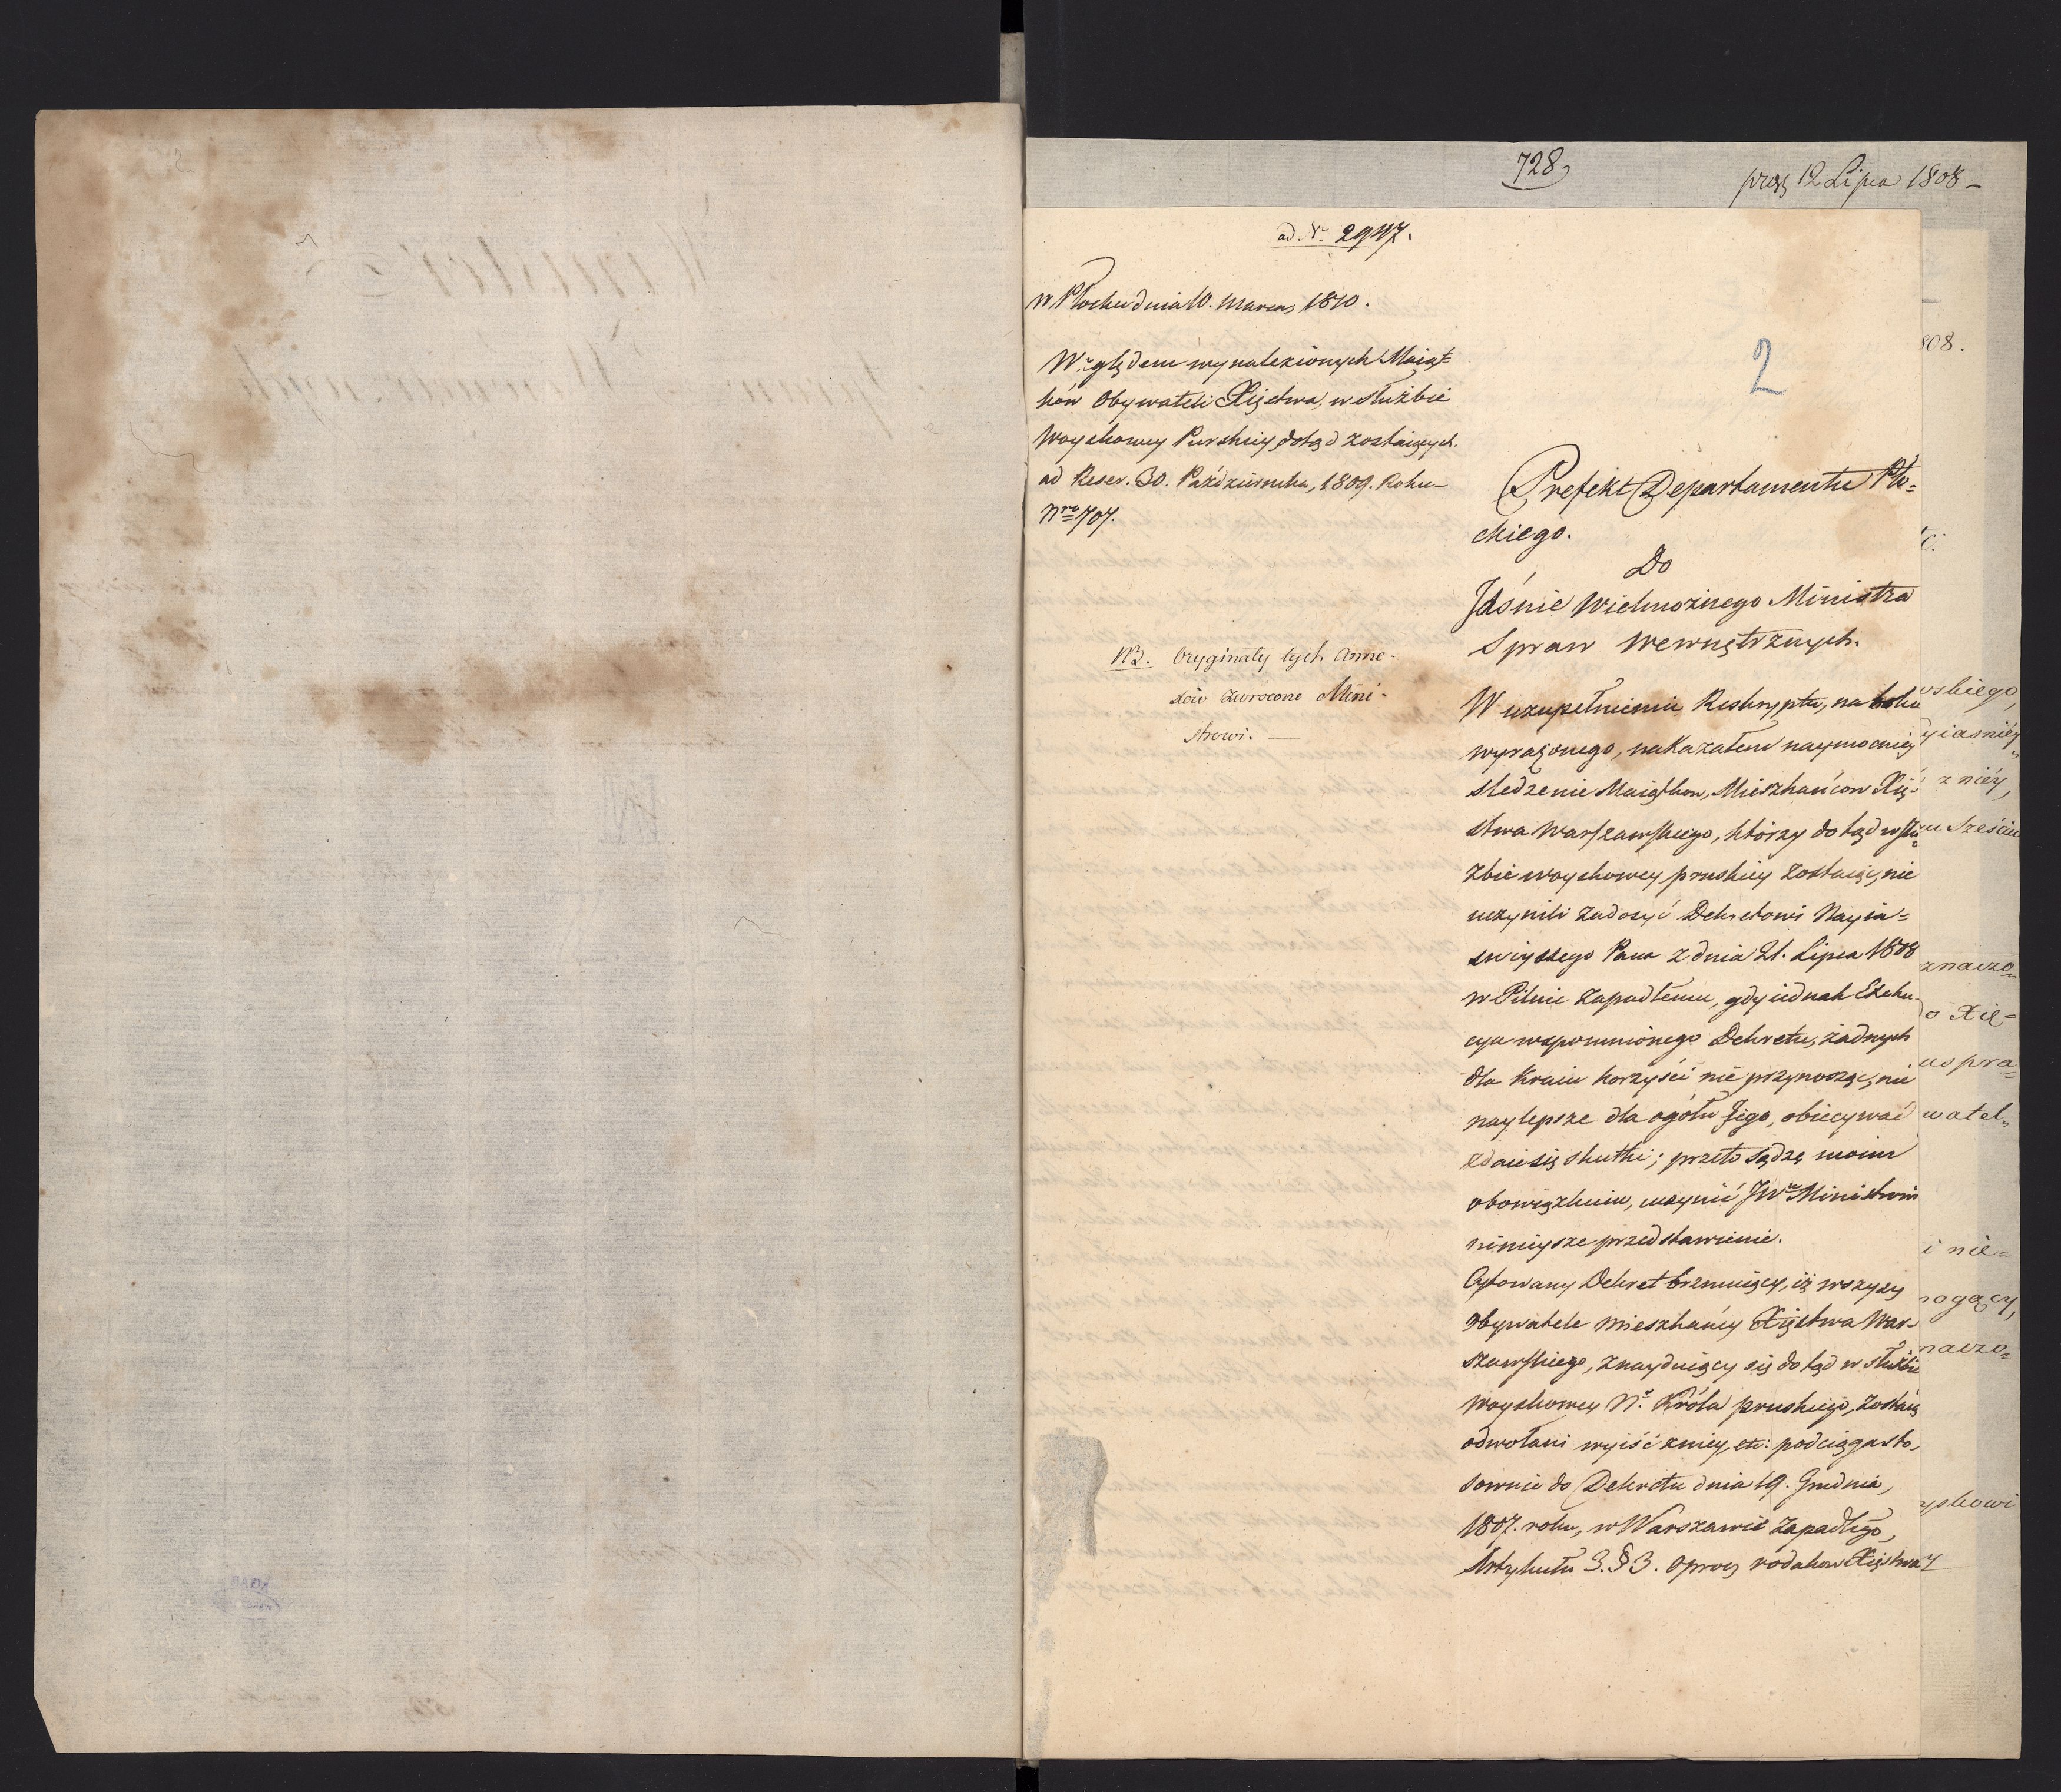 728
prez 12 Lipca 1808 –
ad Nr 2947.
w Płocku dnia 10. Marca, 1810.
Względem wynalezionych Maiąt=
ków Obywateli Xięstwa, w służbie
Woyskowey Pruskiey dotąd zostaiących.
ad Rescr. 30. Października, 1809. Roku
Nro 707.
NB. Oryginały tych Anne-
xów zwrocone Mini-
strowi. —
2
Prefekt Departamentu Pło=
ckiego.
Do
Jaśnie Wielmożnego Ministra
Spraw Wewnętrznych.
W uzupełnieniu Reskryptu, na boku
wyrażonego, nakazałem naymocniey
sledzenie Maiątkow, Mieszkańcow Xię-
stwa Warszawskiego, którzy dotąd w słu=
żbie woyskowey pruskiey zostaiąc, nie
uczynili zadosyć Dekretowi Nayia=
snieyszego Pana z dnia 21. Lipca 1808
w Pilnic zapadłemu, gdy iednak Exeku-
cya wspomnionego Dekretu, żadnych
dla Kraiu korzyści nie przynosząc, nie
naylepsze dla ogółu Jego, obiecywać
zdaie się skutki; przeto sądzę moim
obowiązkiem, uczynić JWu Ministrowi
nineysze przedstawienie.
Cytowany Dekret brzmiący, iż wszyscy
obywatele mieszkańcy Xięstwa War-
szawskiego, znayduiący się dotąd w służbie
woyskowey N. Króla pruskiego, zostaią
odwołani wyiść z niey, etc: podciąga sto,
sownie do Dekretu dnia 19. Grudnia,
1807. roku, w Warszawie zapadłego,
Artykułu 3. § 3. oprocz rodakow Xięstwa
808.
wskiego,
yiasniéy
z niéy,
u sześciu
znaczo=
o Xię=
uspra=
watel„
i nie=
mogący,
naczo=
yskowi